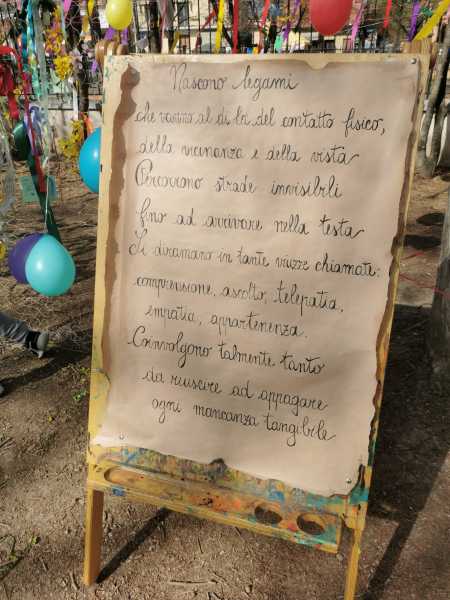 Nascono legami
che vanno al di là del contatto fisico,
della vicinanza e della vista
Percorrono strade invisibili
fino ad arrivare nella testa
Si diramano in tante viuzze chiamate:
comprensione, ascolto, telepatia,
empatia, appartenenza.
Coinvolgono talmente tanto
da riuscire ad appagare
ogni mancanza tangibile